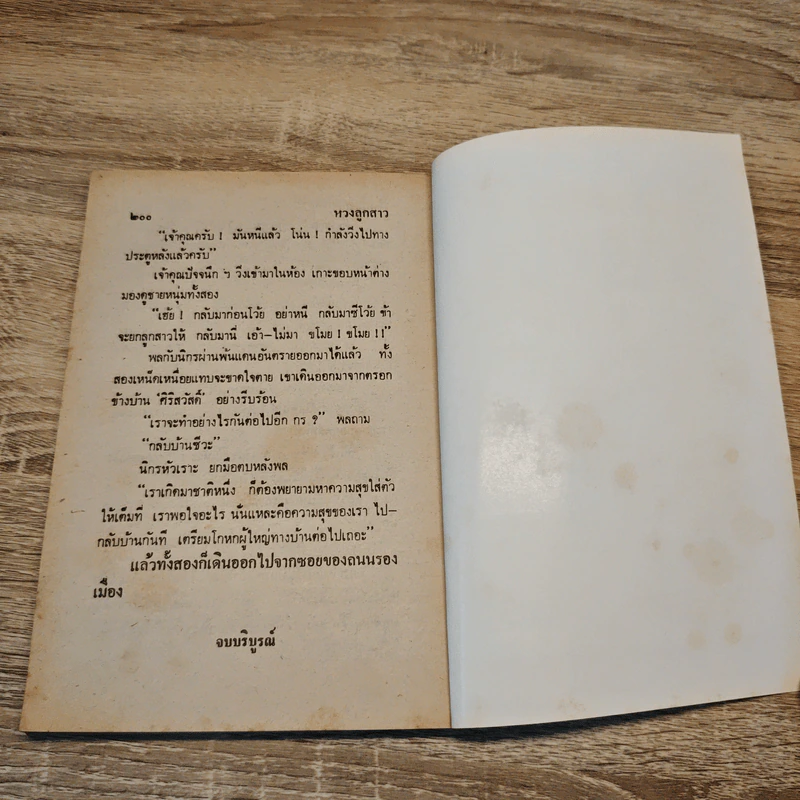 ๒๐๐ หวงลูกสาว
“เจ้าคุณครับ ! มันหนีแล้ว โน่น ! กำลังวิ่งไปทาง
ประตูหลังแล้วครับ”
เจ้าคุณปัจจนึก ฯ วิ่งเข้ามาในห้อง เกาะขอบหน้าต่าง
มองดูชายหนุ่มทั้งสอง
“เฮ้ย ! กลับมาก่อนโว้ย อย่าหนี กลับมาซีโว้ย ข้า
จะยกลูกสาวให้ กลับมานี่ เอ้า—ไม่มา ขโมย ! ขโมย !!”
พลกับนิกรผ่านพ้นแดนอันตรายออกมาได้แล้ว ทั้ง
สองเหน็ดเหนื่อยแทบจะขาดใจตาย เขาเดินออกมาจากตรอก
ข้างบ้าน ‘ศิริสวัสดิ์’ อย่างรีบร้อน
“เราจะทำอย่างไรกันต่อไปอีก กร ?” พลถาม
“กลับบ้านซีวะ”
นิกรหัวเราะ ยกมือตบหลังพล
“เราเกิดมาชาติหนึ่ง ก็ต้องพยายามหาความสุขใส่ตัว
ให้เต็มที่ เราพอใจอะไร นั่นแหละคือความสุขของเรา ไป—
กลับบ้านกันที เตรียมโกหกผู้ใหญ่ทางบ้านต่อไปเถอะ”
แล้วทั้งสองก็เดินออกไปจากซอยของถนนรอง
เมือง
จบบริบูรณ์